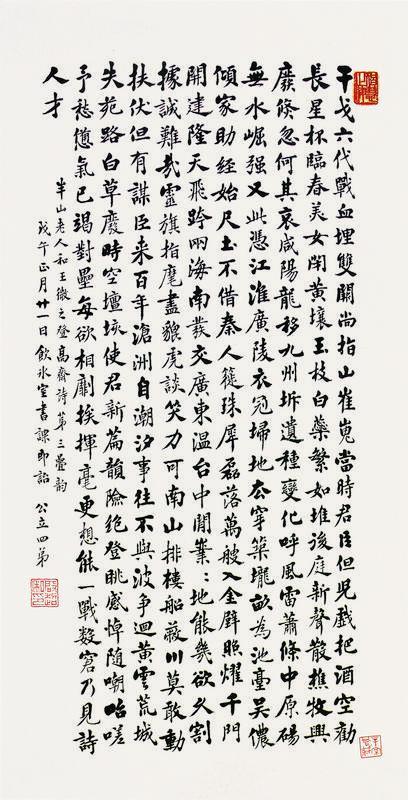 干戈六代戰血埋雙闕尚指山崔嵬當時君臣但兒戲把酒空勸
長星杯臨春美女閉黄壤玉枝白蘂繁如堆後庭新聲散樵牧興
廢倏忽何其哀咸陽龍移九州坼遺種變化呼風雷蕭條中原碭
無水崛强又此憑江淮廣陵衣冠掃地去穿築壠畝為池臺吳儂
傾家助經始尺土不借秦人簁珠犀磊落萬艘入金璧照耀千門
開建隆天飛跨兩海南發交廣東温台中間業〻地能幾欲久割
據誠難哉靈旗指麾盡貔虎談笑力可南山排樓船蔽川莫敢動
扶伏但有謀臣来百年滄洲自潮汐事往不與波争迴黄雲荒城
失苑路白草廢畤空壇垓使君新篇韻險絶登眺感悼随嘲咍嗟
予愁憊氣已竭對壘每欲相劘挨揮毫更想能一戰數窘乃見詩
人才
半山老人和王微之登高齋詩第三疊韵
戊午正月廿一日飲冰室書課即詒 公立四弟